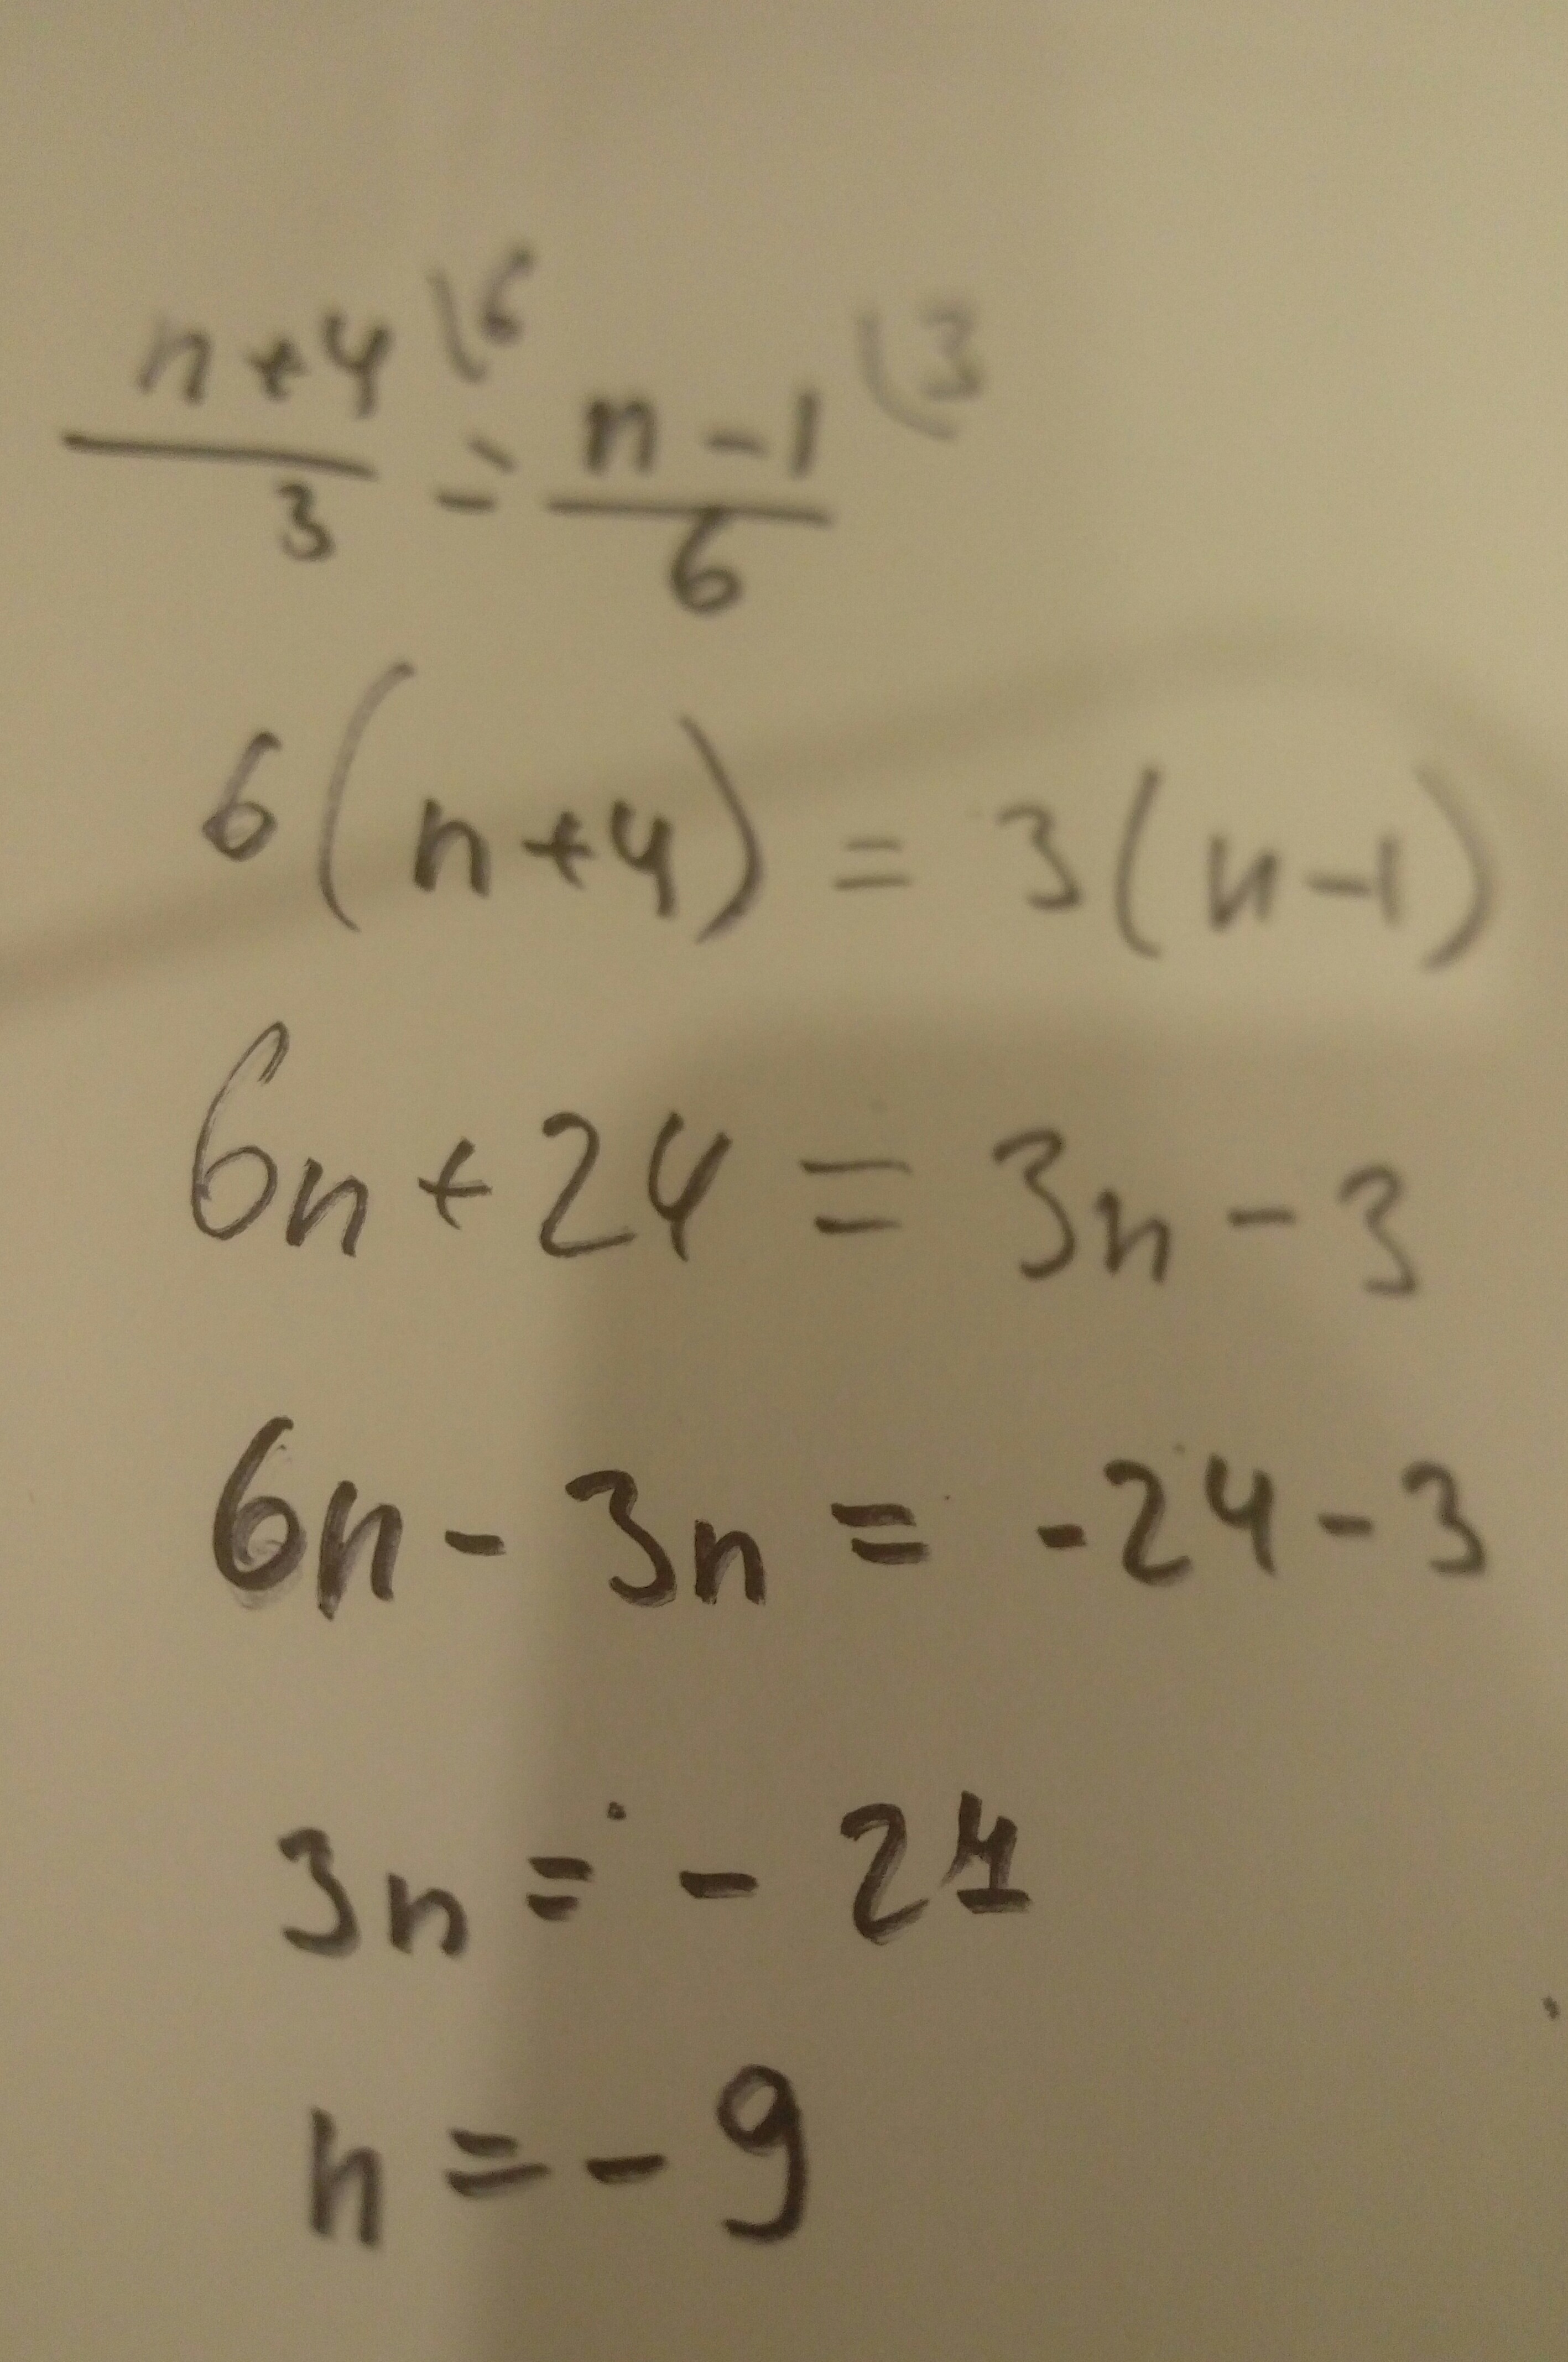 n+4 \6 / 3 = n-1 \3 / 6
6(n+4) = 3(n-1)
6n+24 = 3n-3
6n-3n = -24-3
3n = -27
n = -9